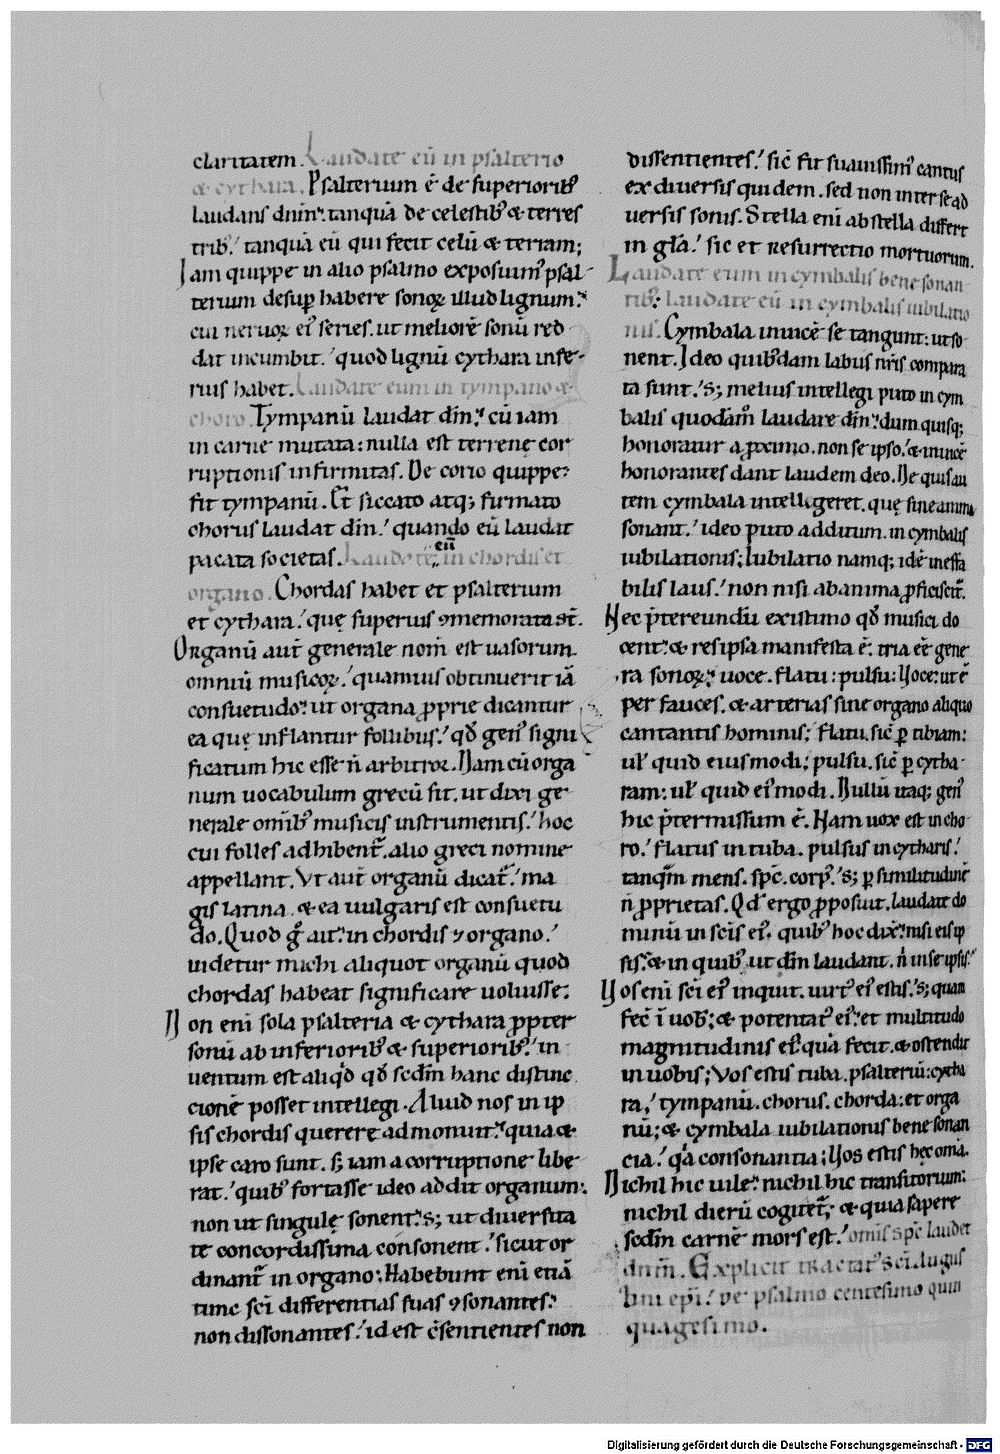 claritatem. Laudate eū in psalterio
& cythara. Psalterium ē de superiorib;
laudans dnm̄. tanquā de celestib; & terres
trib; tanquā eū qui fecit celū & terram;
Jam quippe in alio psalmo exposuim; psal-
terium desup habere sonoꝝ illud lignum.
cui neruoꝝ ei; series. ut meliorē sonū red
dat incumbit. quod lignū cythara infe-
rius habet. Laudate eum in tympano &
choro. Tympanū laudat dm̄. cū iam
in carne mutata: nulla est terrenę cor
ruptionis infirmitas. De corio quippe
fit tympanū. Et siccato atq; firmato
chorus laudat dm̄. quando eū laudat
pacata societas. Laudate eū in chordis et
organo. Chordas habet et psalterium
et cythara. quę superius ꝯmemorata st̄.
Organū aut̄ generale nom̄ est uasorum
omniū musicoꝝ. quamuis obtinuerit iā
consuetudo. ut organa ꝓprie dicantur
ea quę inflantur follibus. qđ gen; signi
ficatum hic esse n̄ arbitror. Nam cū orga
num uocabulum grecū sit. ut dixi ge-
nerale omīb; musicis instrumentis. hoc
cui folles adhibent̄. alio greci nomine
appellant. Vt aut̄ organū dicat̄. ma
gis latina & ea uulgaris est consuetu
do. Quod g̊ ait. in chordis ⁊ organo.
uidetur michi aliquot organū quod
chordas habeat significare uoluisse.
Non eni sola psalteria & cythara ꝓpter
sonū ab inferiorib; & superiorib; in
uentum est aliqđ qđ scdm̄ hanc distinc
cionē posset intellegi. Aliud nos in ip
sis chordis querere admonuit. quia &
ipse caro sunt. s; iam a corruptione libe
rat. quib; fortasse ideo addit organum.
non ut singulę sonent. s; ut diuersita
te concordissima consonent. sicut or
dinant̄ in organo; Habebunt eni etiā
tunc sci differentias suas ꝯsonantes.
non dissonantes. id est c̄sentientes non
dissentientes. sic̄ fit suauissim; cantus
ex diuersis quidem. sed non inter se ad
uersis sonis. Stella eni ab stella differt
in glā. sic et resurrectio mortuorum.
Laudate eum in cymbalis bene sonan
tib; laudate eū in cymbalis iubilatio
nis. Cymbala inuicē se tangunt: ut so
nent. Ideo quibdam labiis nr̄is compara
ta sunt. s; melius intellegi puto in cym
balis quodām laudare dm̄. dum quisq;
honoratur a ꝓximo. non se ipso. & inuicē
honorantes dant laudem deo. Ne quis au
tem cymbala intelligeret. quę sine anima
sonant. ideo puto additum. in cymbalis
iubilationis; Iubilatio namq; idē ineffa
bilis laus. non nisi ab anima ꝓficiscit̄.
Nec p̄tereundū existimo qđ musici do
cent. & res ipsa manifesta ē: tria eē gene
ra sonoꝝ. uoce. flatu: pulsu: Uoce: ut ē
per fauces. & arterias sine organo aliquo
cantantis hominis; flatu. sic̄ ꝑ tibiam:
ul̄ quid eiusmodi; pulsu. sic̄ ꝑ cytha-
ram: ul̄ quid ei;modi. Nullū itaq; gen;
hic p̄termissum ē. Nam uox est in cho-
ro. flatus in tuba. pulsus in cytharis.
tanq̄m mens. spc̄. corp; s; ꝑ similitudinē
n̄ ꝓprietas. Qd̄ ergo ꝓposuit. laudate do
minū in scīs ei; quib; hoc dix̄. nisi eis ip
sis. & in quib; ut dm̄ laudant. n̄ in se ipsis.
Uos eni sci ei; inquit. uirt; ei; estis. s; quam
fec̄ i uob; & potentat; ei;. et multitudo
magnitudinis ei; quā fecit. & ostendit
in uobis; Vos estis tuba. psalteriū: cytha
ra, tympanū. chorus. chorda: et orga
nū; & cymbala iubilationis bene sonan
cia. qa consonantia; Uos estis hęc omīa.
Nichil hic uile. nichil hic transitorium:
nichil dierū cogitet̄; & quia sapere
scdm̄ carnē mors est. omīs spc̄ laudet
dnm̄. Explicit tractat; sci Augus
tini epī. de psalmo centesimo quin
quagesimo.
Digitalisierung gefördert durch die Deutsche Forschungsgemeinschaft - DFG